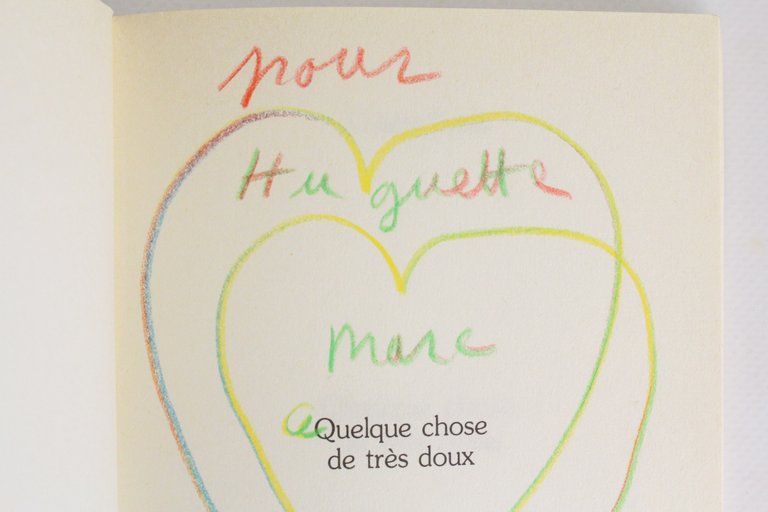 pour
Huguette
marc
Quelque chose
de très doux